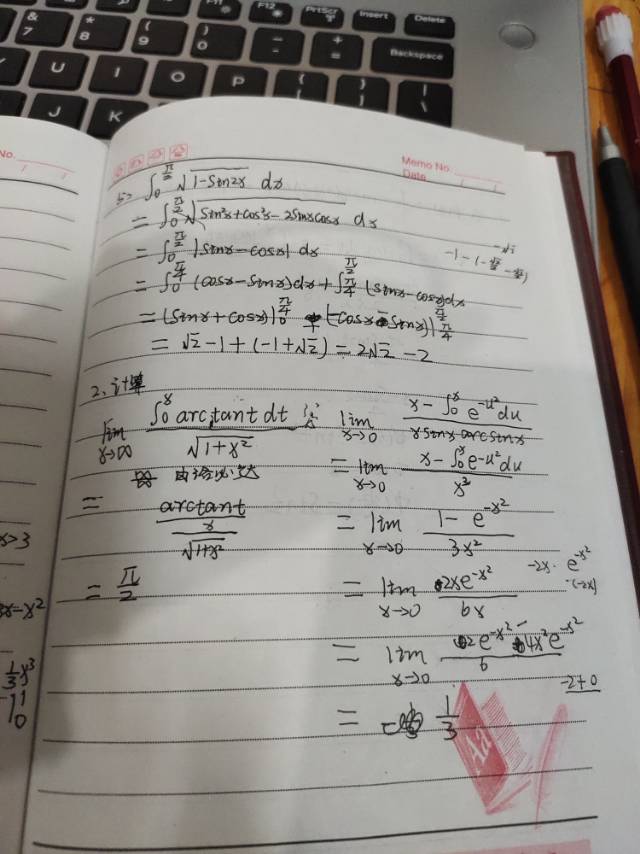 F11 F12 PrtScr Insert Delete
& 7 * 8 ( 9 ) 0 - + = Backspace
U I O P
J K
No.
Memo No.
Date / /
5> ∫₀^{π/2} √(1-sin2x) dx
= ∫₀^{π/2} √(sin²x+cos²x-2sinxcosx) dx
= ∫₀^{π/2} |sinx-cosx| dx
= ∫₀^{π/4} (cosx-sinx)dx + ∫_{π/4}^{π/2} (sinx-cosx)dx
= (sinx+cosx)|₀^{π/4} + (-cosx-sinx)|_{π/4}^{π/2}
= √2-1+(-1+√2) = 2√2-2
2、计算
lim_{x→∞} ∫₀^x arctant dt / √(1+x²)
由洛必达
= arctant / (x/√(1+x²))
= π/2
lim_{x→0} (x-∫₀^x e^{-u²}du) / (x sinx arcsinx)
= lim_{x→0} (x-∫₀^x e^{-u²}du) / x³
= lim_{x→0} (1-e^{-x²}) / 3x²
= lim_{x→0} 2xe^{-x²} / 6x
-2x·e^{-x²}
·(-2x)
= lim_{x→0} (2e^{-x²}-4x²e^{-x²}) / 6
-2+0
= 1/3
x>3
3x-x²
1/3 x³
Aa